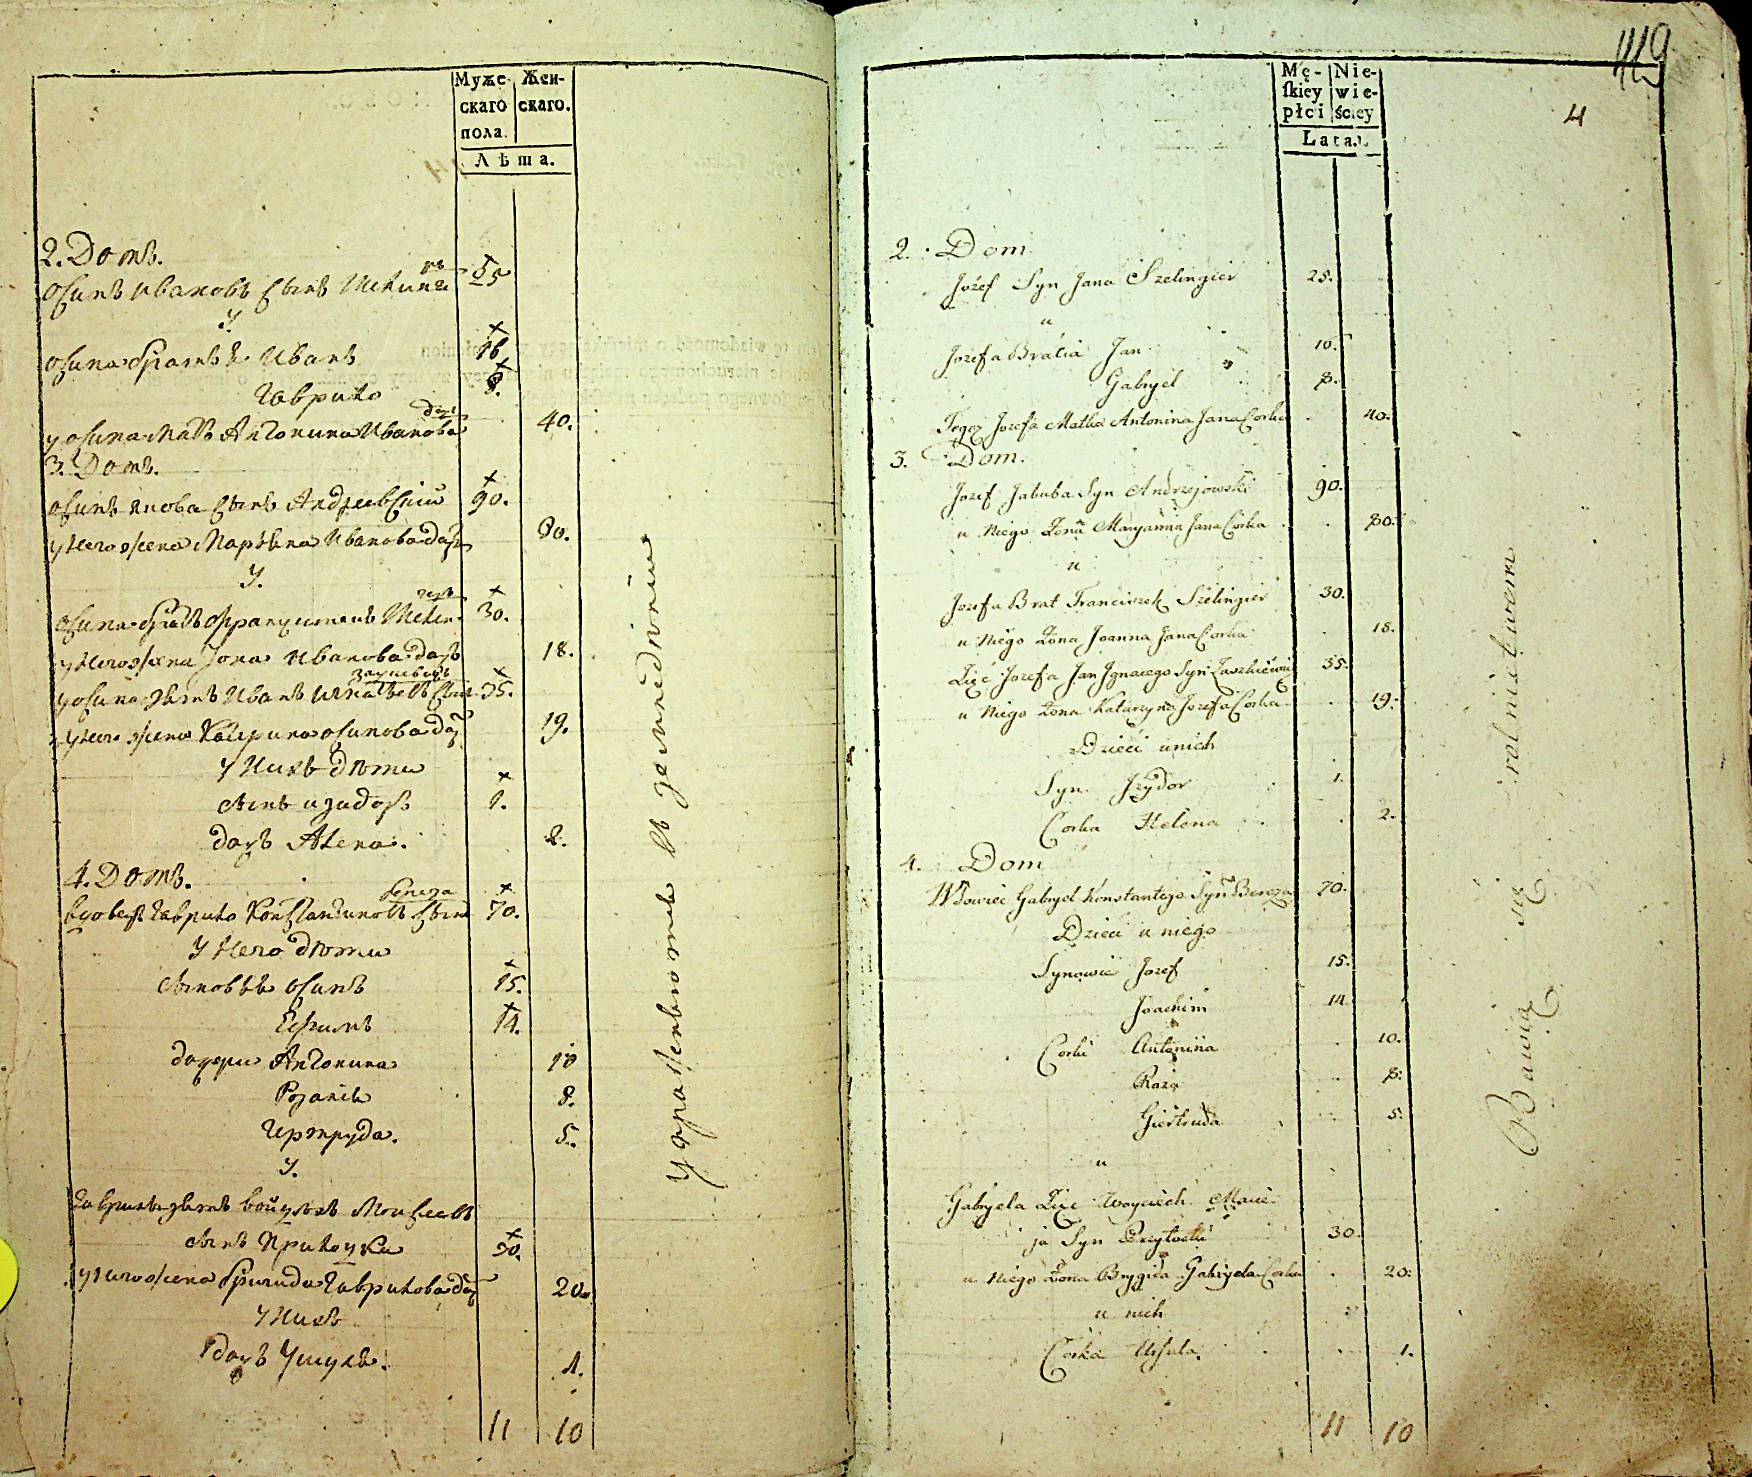 Муже- Жен-
скаго скаго.
пола.
Лѣта.
2. Домъ.
Осипъ Ивановъ сынъ Шелинге 25
ръ
У
Осипа братья Иванъ 16
Гаврило 8.
у осипа мать Антонина Иванова 40.
дочь
3. Домъ.
Осипъ якова сынъ Андреевский 90.
у него жена Марьяна Иванова дочь 80.
У.
осипа братъ Францишекъ Шелин- 30.
геръ
у него жена Иоана Иванова дочь 18.
у осипа зять Иванъ Игнатьевъ сынъ 35.
у него жена Катерина осипова дочь 19.
У нихъ дѣти
сынъ изидоръ 1.
дочь Алена. 2.
4. Домъ.
вдовецъ Гаврило Константиновъ сынъ 70.
береза
У него дѣти
сыновья осипъ 15.
Ефимъ 14.
дочери Антонина 10
Розалия 8.
Иртруда. 5.
У.
Гаврилы зять войцехъ Моисеевъ
сынъ Прилоцки 30.
у него жена бригида Гаврилова дочь 20.
У нихъ
дочь Уршула. 1.
11 10
упражненiе въ земледѣлiи
449
4
Mę- Nie-
ſkiey wie-
płci ściey
Lata.
2. Dom
Józef Syn Jana Szelingier 25.
u
Jozefa Bracia Jan 10.
Gabryel 8.
Tegoż Jozefa Matka Antonina Jana Corka 40.
3. Dom.
Jozef Jakuba Syn Andrzejowski 90.
u Niego Żona Maryanna Jana Corka 80.
u
Jozefa Brat Franciszek Szelingier 30.
u Niego Żona Joanna Jana Corka 18.
Zięć Jozefa Jan Jgnacego Syn 35.
u Niego Żona Katarzyna Jozefa Corka 19.
Dzieci u nich
Syn Jzydor 1.
Corka Helena 2.
4. Dom
Wdowiec Gabryel Konstantego Syn Bereza 70.
Dzieci u niego
Synowie Jozef 15.
Joachim 14
Corki Antonina 10.
Roza 8.
Giertruda 5.
u
Gabryela Zięć Woyciech Macie-
ja Syn Przytocki 30.
u Niego Żona Brygida Gabryela Corka 20.
u nich
Corka Urſula. 1.
11 10
Bawią się rolnictwem